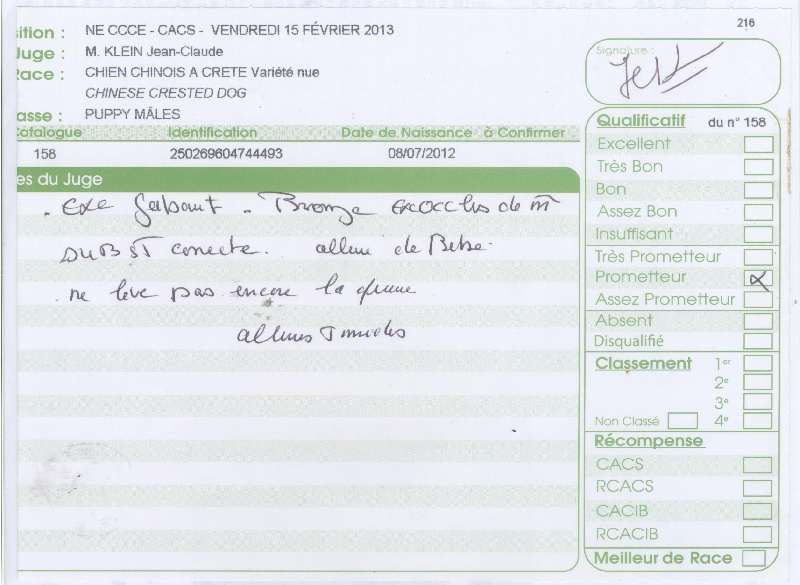 ition : NE CCCE - CACS - VENDREDI 15 FÉVRIER 2013
216
Juge : M. KLEIN Jean-Claude
Race : CHIEN CHINOIS A CRETE Variété nue
CHINESE CRESTED DOG
asse : PUPPY MÂLES
Signature :
Catalogue Identification Date de Naissance à Confirmer
158 250269604744493 08/07/2012
es du Juge
. Exc Gabarit . Bronze
correcte. allure de Bebe.
. ne leve pas encore la
allures
Qualificatif du n° 158
Excellent
Très Bon
Bon
Assez Bon
Insuffisant
Très Prometteur
Prometteur X
Assez Prometteur
Absent
Disqualifié
Classement 1er
2e
3e
Non Classé 4e
Récompense
CACS
RCACS
CACIB
RCACIB
Meilleur de Race